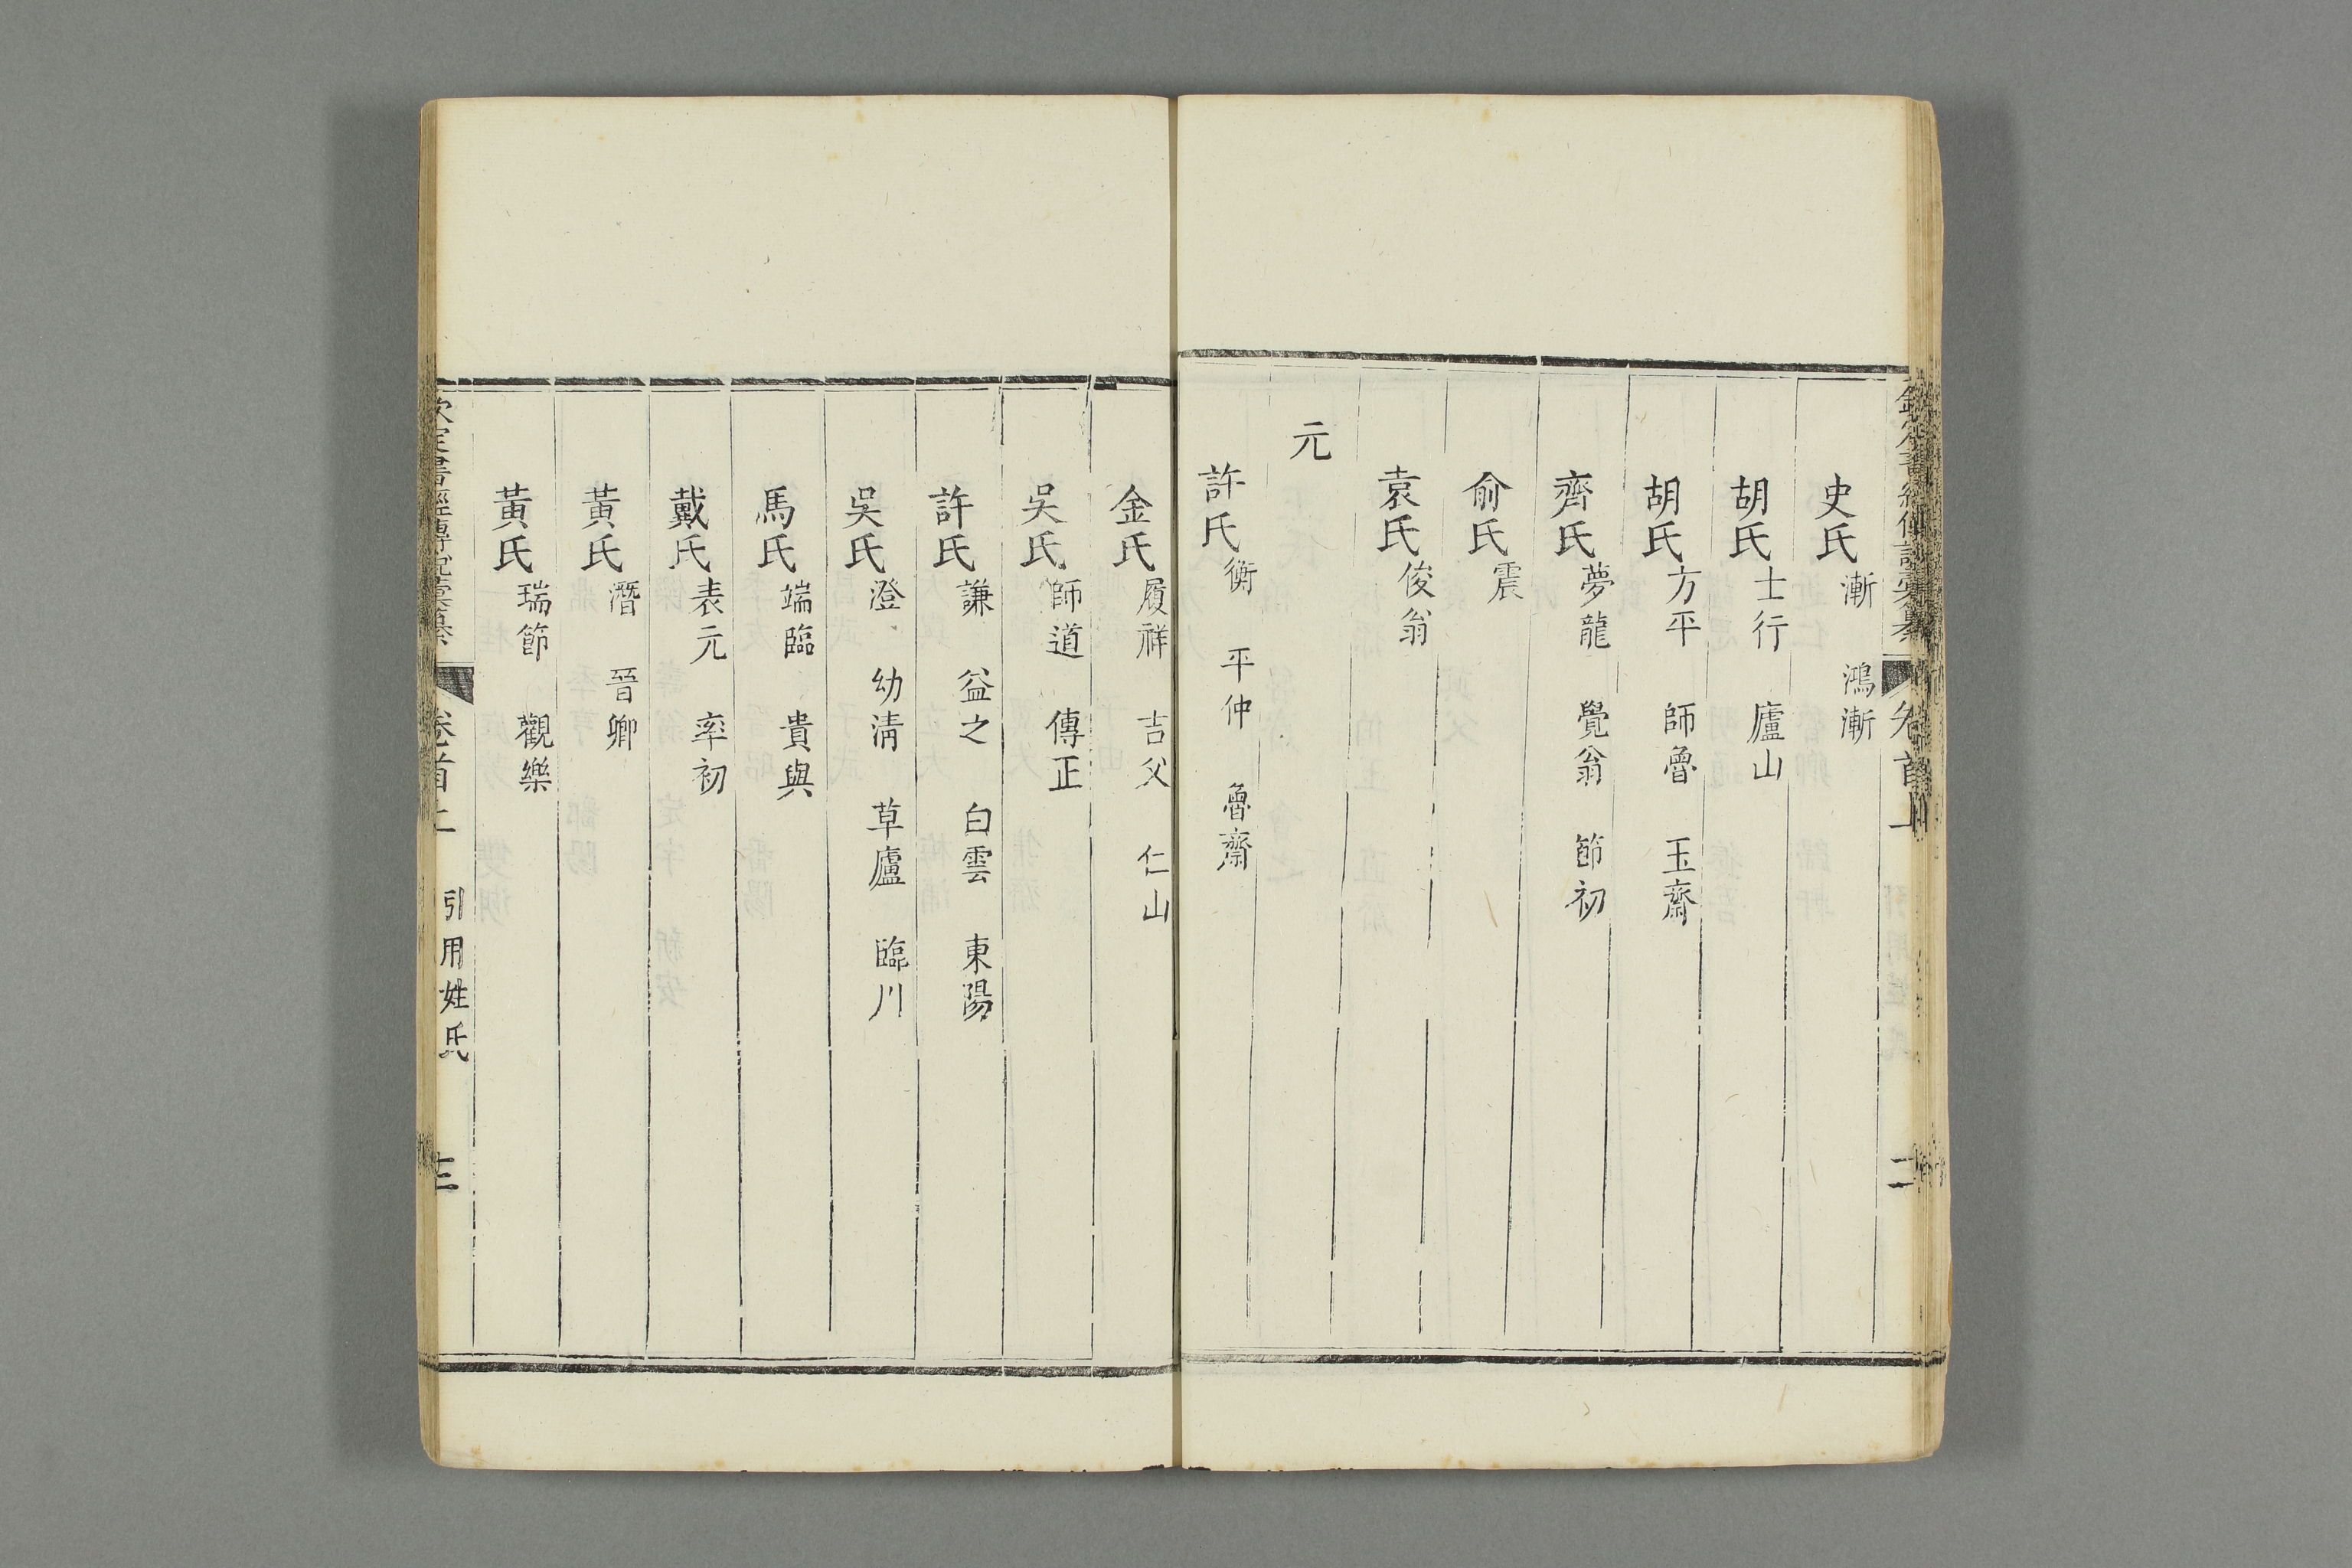 史氏漸 鴻漸
胡氏士行 廬山
胡氏方平 師魯 玉齋
齊氏夢龍 覺翁 節初
俞氏震
袁氏俊翁
元
許氏衡 平仲 魯齋
金氏履祥 吉父 仁山
吳氏師道 傳正
許氏謙 益之 白雲 東陽
吳氏澄 幼淸 草廬 臨川
馬氏端臨 貴與
戴氏表元 率初
黃氏潛 晉卿
黃氏瑞節 觀樂
欽定書經傳說彙纂 卷首上 引用姓氏 三